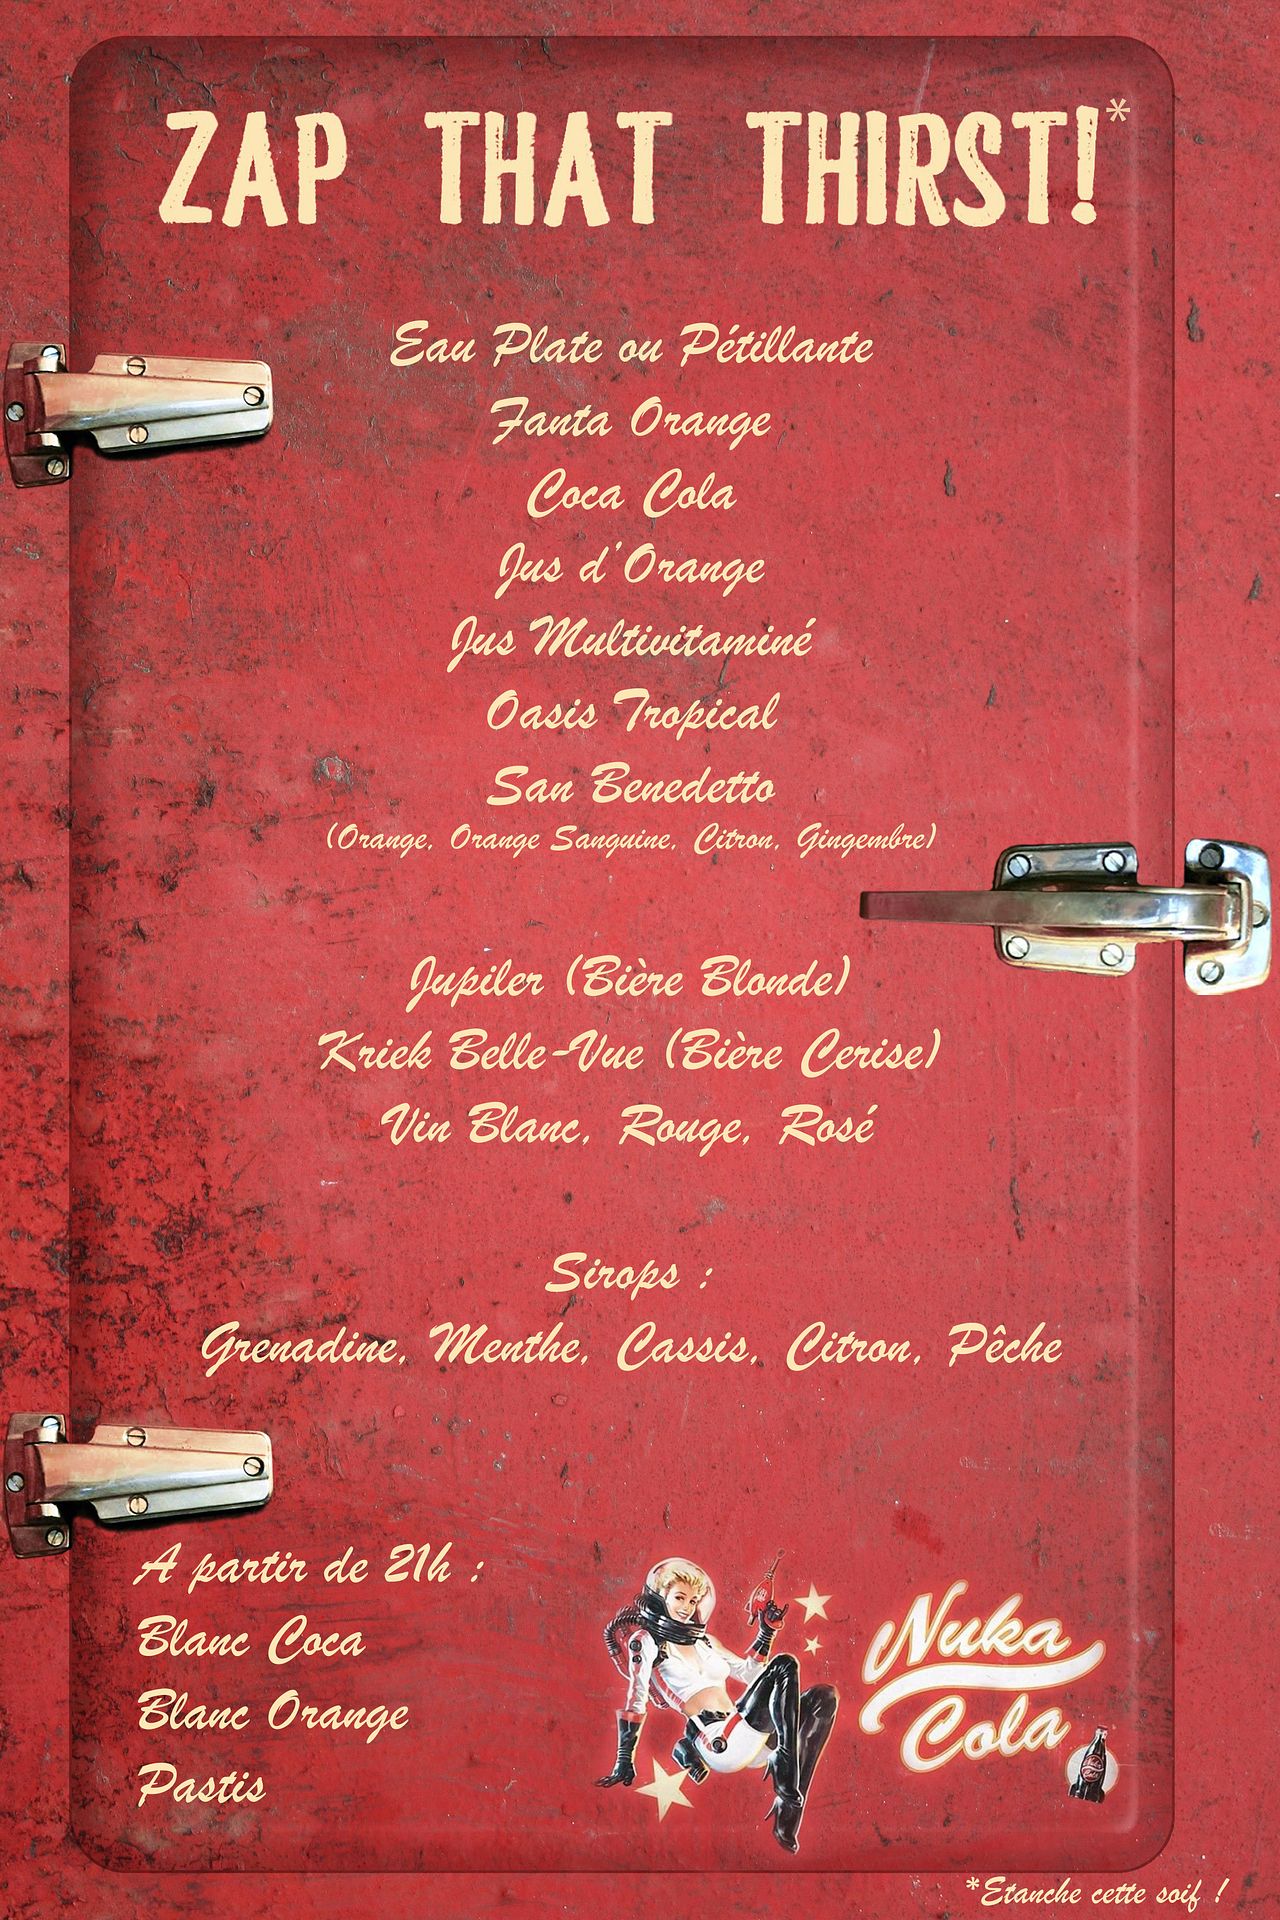 ZAP THAT THIRST!*
Eau Plate ou Pétillante
Fanta Orange
Coca Cola
Jus d'Orange
Jus Multivitaminé
Oasis Tropical
San Benedetto
(Orange, Orange Sanguine, Citron, Gingembre)
Jupiler (Bière Blonde)
Kriek Belle-Vue (Bière Cerise)
Vin Blanc, Rouge, Rosé
Sirops :
Grenadine, Menthe, Cassis, Citron, Pêche
A partir de 21h :
Blanc Coca
Blanc Orange
Pastis
Nuka
Cola
Nuka
Cola
*Etanche cette soif !